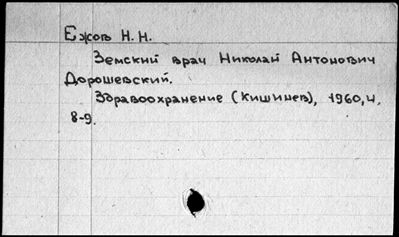 Ежов Н.Н.
Земский врач Николай Антонович
Дорошевский.
Здравоохранение (Кишинев), 1960, 4,
8-9.